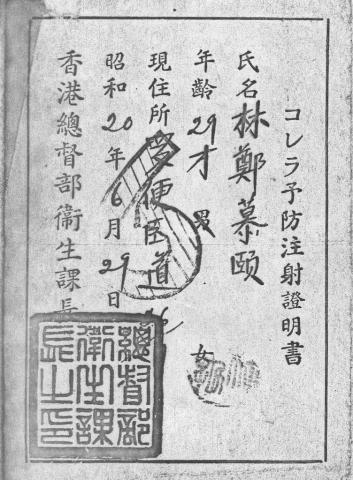 コレラ予防注射證明書
氏名 林鄭慕頤
年齢 29才 男 女
現住所 便臣道
昭和20年6月29日
香港總督部衛生課長
總督部
衛生課
長之印